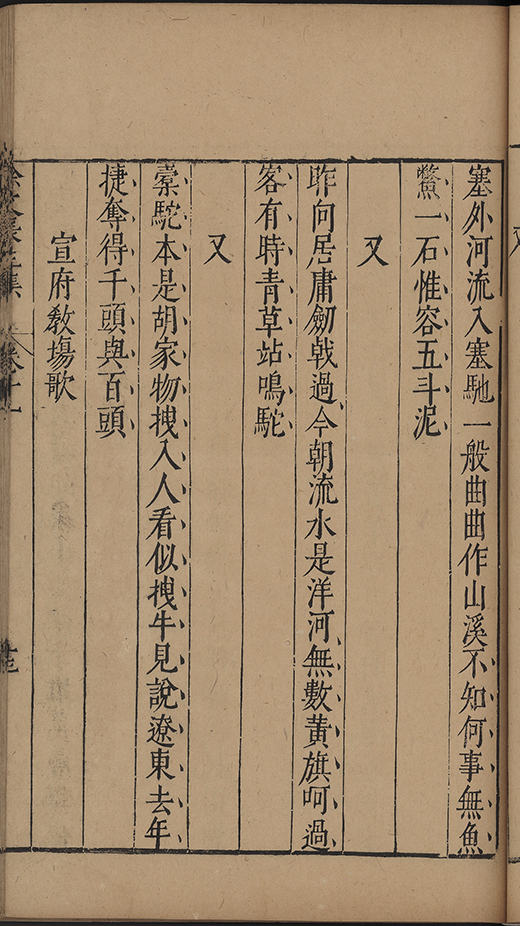 塞外河流入塞馳一般曲曲作山溪不知何事無魚
鱉一石惟容五斗泥
又
昨向居庸劒戟過今朝流水是洋河無數黃旗呵過
客有時青草站鳴駝
又
橐駝本是胡家物拽入人看似拽牛見說遼東去年
捷奪得千頭與百頭
宣府敎塲歌